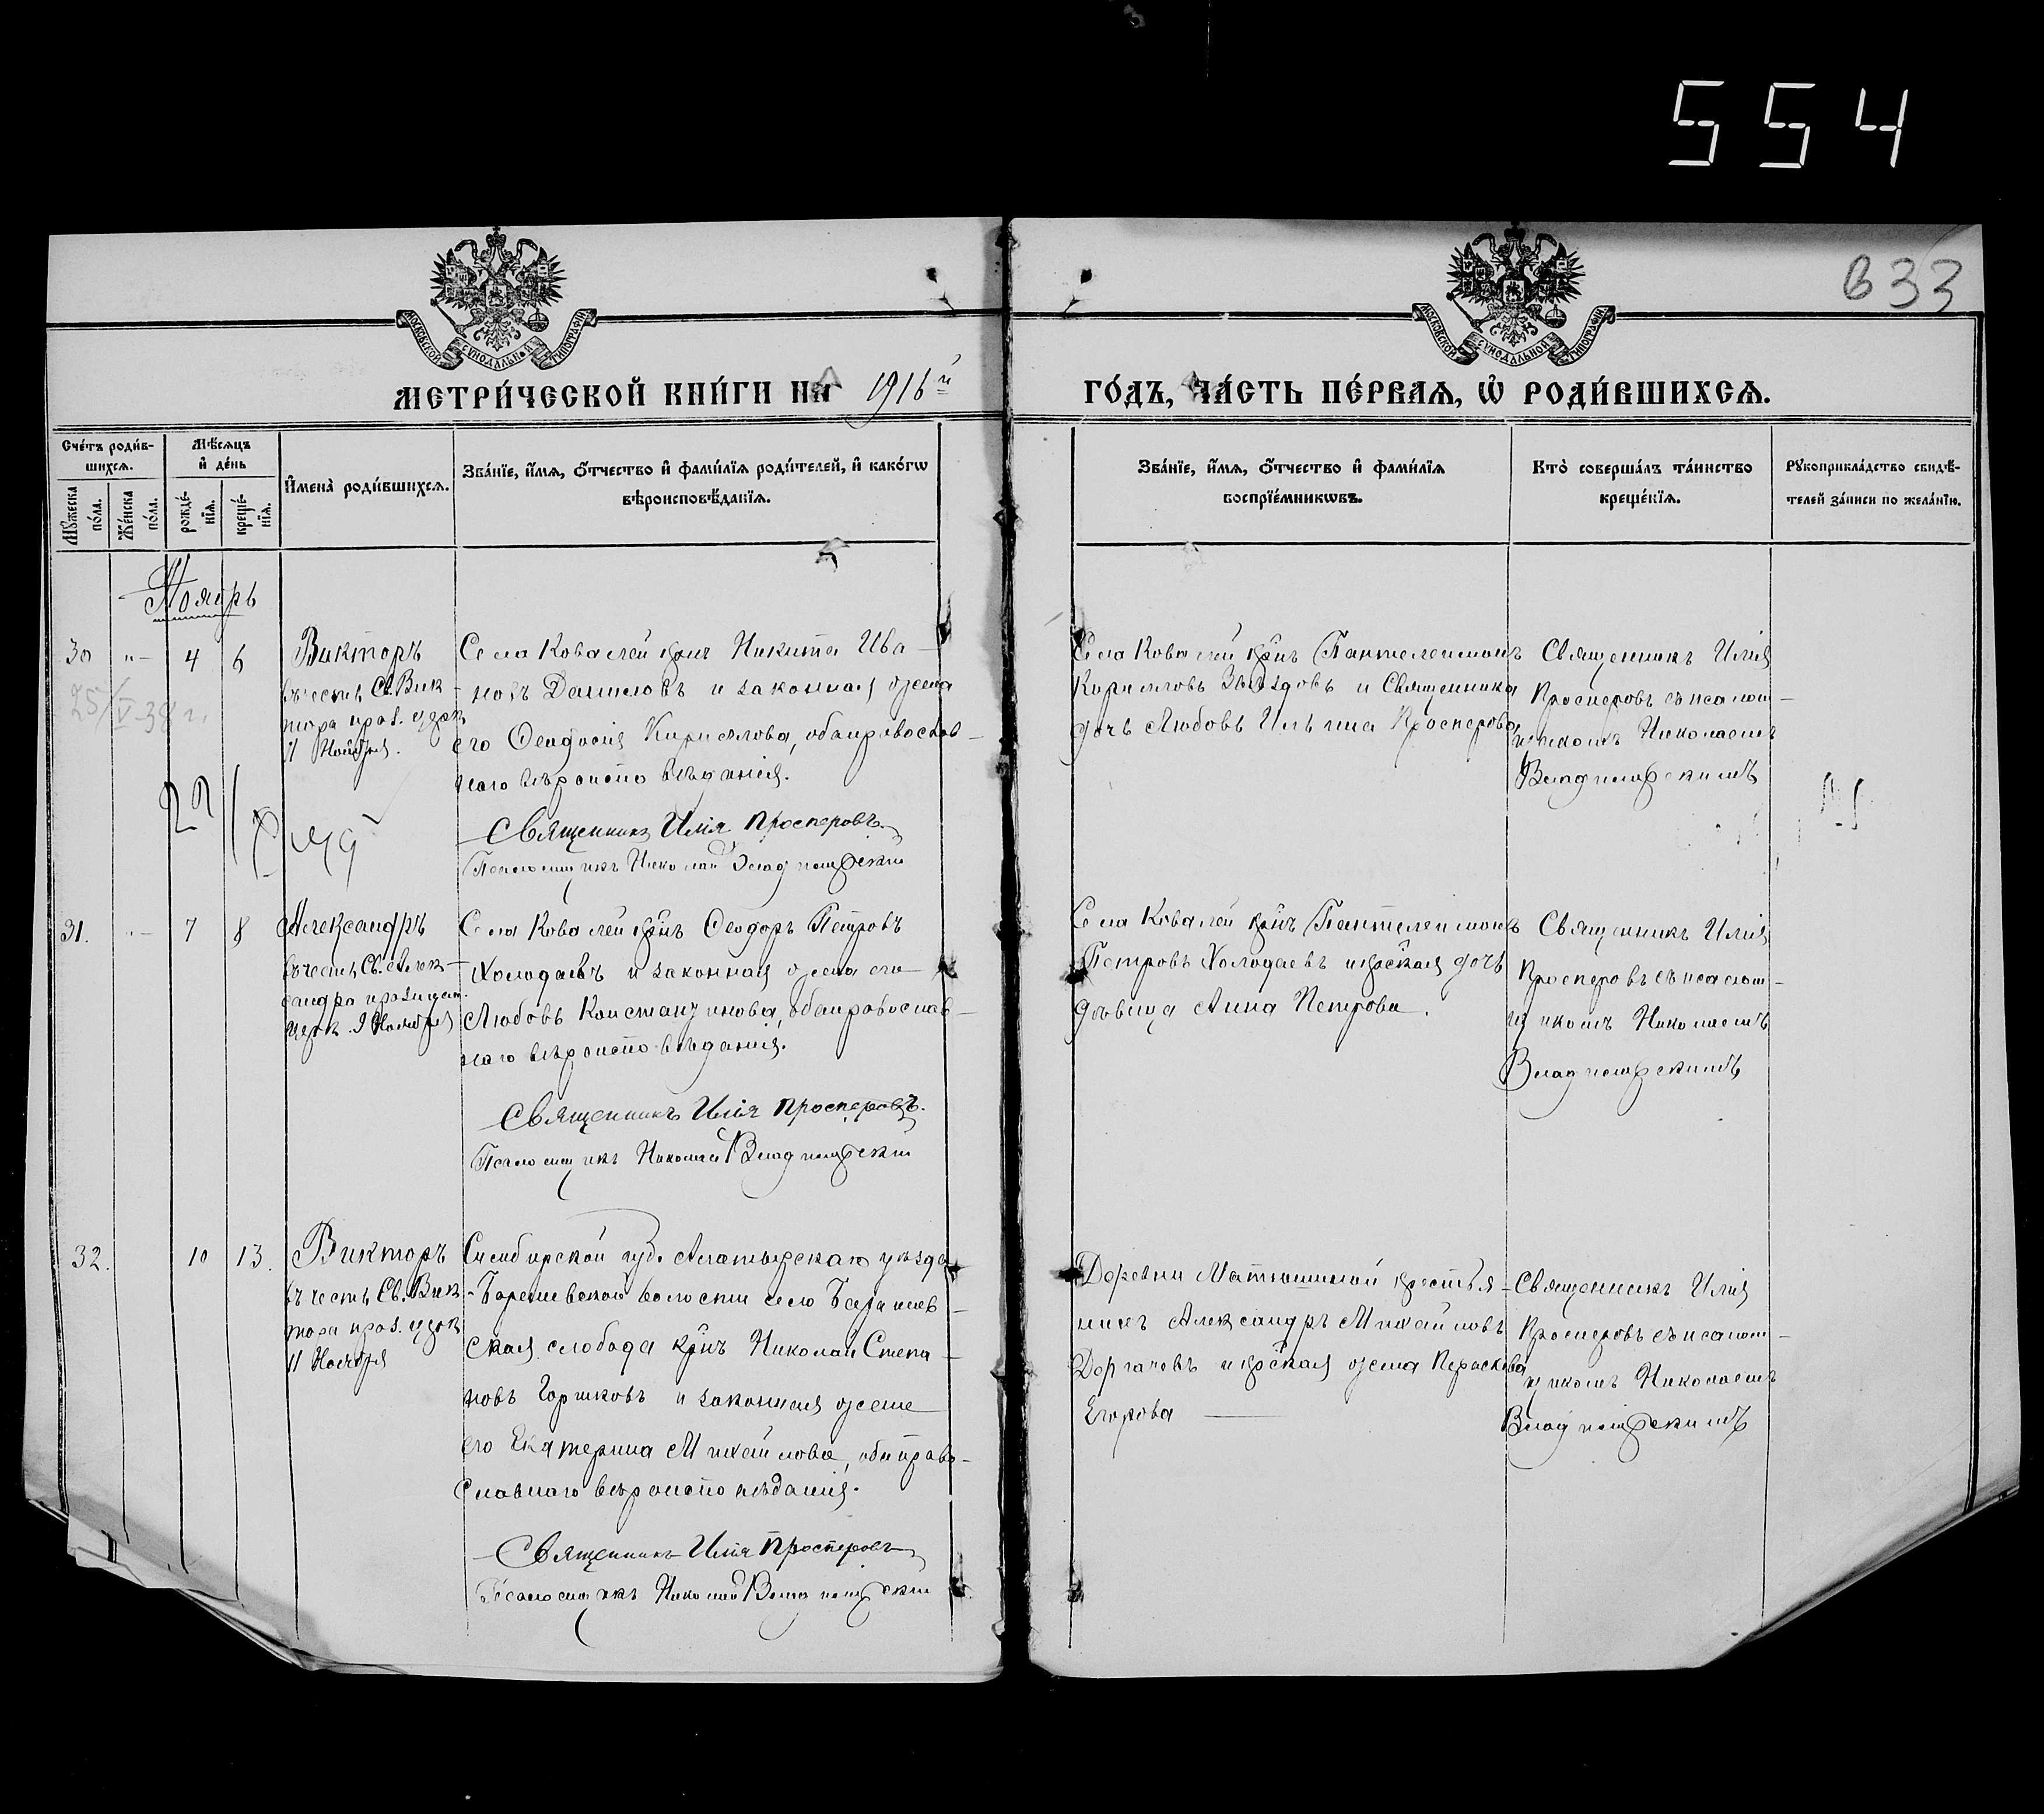 554
633
МОСКОВСКОЙ СѴНОДАЛЬНОЙ ТИПОГРАФІИ
МОСКОВСКОЙ СѴНОДАЛЬНОЙ ТИПОГРАФІИ
МЕТРИ́ЧЕСКОЙ КНИ́ГИ НА 1916й ГО́ДЪ, ЧА́СТЬ ПЕ́РВАѦ, Ѡ҆ РОДИ́ВШИХСѦ.
Сче́тъ роди́в-
шихсѧ.
Мꙋ́жеска
по́ла.
Же́нска
по́ла.
Мѣ́сѧцъ
и҆ де́нь
рожде́-
нїѧ.
креще́-
нїѧ.
И҆мена̀ роди́вшихсѧ.
Зва́нїе, и҆́мѧ, ѻ҆́тчество и҆ фами́лїѧ роди́телей, и҆ како́гѡ
вѣроисповѣ́данїѧ.
Зва́нїе, и҆́мѧ, ѻ҆́тчество и҆ фами́лїѧ
воспрїе́мникѡвъ.
Кто̀ соверша́лъ та́инство
креще́нїѧ.
Рꙋкоприкла́дство свидѣ́-
телей за́писи по жела́нїю.
Ноябрь
30 "- 4 6
Викторъ
въ честь Св. Вик-
тора праз. церк.
11 Ноября.
25/V-38 г.
Села Ковалей крнъ Никита Ива-
новъ Даниловъ и законная жена
его Ѳеодосія Кириллова, оба православ-
наго вѣроисповѣданія.
Священникъ Илія Просперовъ
Псаломщикъ Николай Владимірскій
Села Ковалей крнъ Пантелеимонъ
Кирилловъ Звѣздовъ и Священника
дочь Любовь Ильина Просперова
Священникъ Илія
Просперовъ съ псалом-
щикомъ Николаемъ
Владимірскимъ
31. "- 7 8
Александръ
въ честь Св. Алек-
сандра празднуем.
церк. 9 Ноября
Села Ковалей крнъ Ѳеодоръ Петровъ
Холодаевъ и законная жена его
Любовь Константинова, оба православ-
наго вѣроисповѣданія.
Священникъ Илія Просперовъ.
Псаломщикъ Николай Владимірскій
Села Ковалей крнъ Пантелеимонъ
Петровъ Холодаевъ и крская дочь
дѣвица Анна Петрова.
Священникъ Илія
Просперовъ съ псалом-
щикомъ Николаемъ
Владимірскимъ
32. 10 13.
Викторъ
въ честь Св. Вик-
тора праз. церк.
11 Ноября
Симбирской губ. Алатырскаго уѣзда
Барышевской волости село
ская слобода крнъ Николай Степа-
новъ Горшковъ и законная жена
его Екатерина Михайлова, оба право-
славнаго вѣроисповѣданія.
Священникъ Илія Просперовъ
Псаломщикъ Николай Владимірскій
Деревни Матюшиной крестья-
нинъ Александръ Михайловъ
Доргачевъ и крская жена Параскева
Егорова
Священникъ Илія
Просперовъ съ псалом-
щикомъ Николаемъ
Владимірскимъ